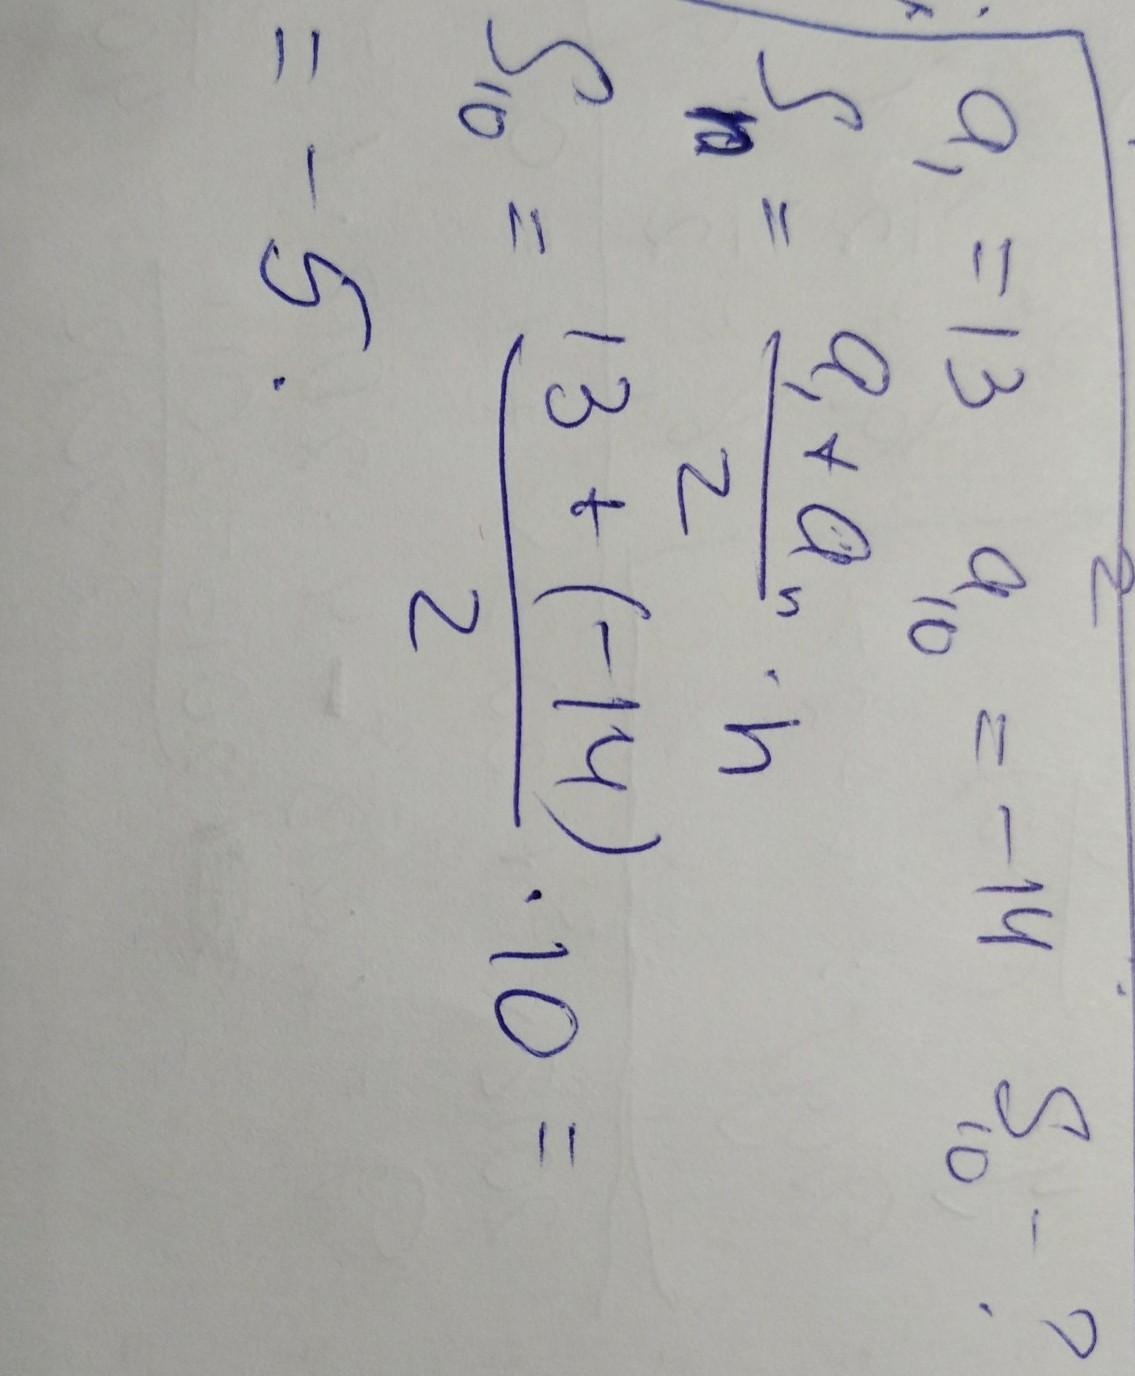 a₁ = 13 a₁₀ = -14 S₁₀ - ?
Sₙ = (a₁ + aₙ)/2 · n
S₁₀ = (13 + (-14))/2 · 10 =
= -5.